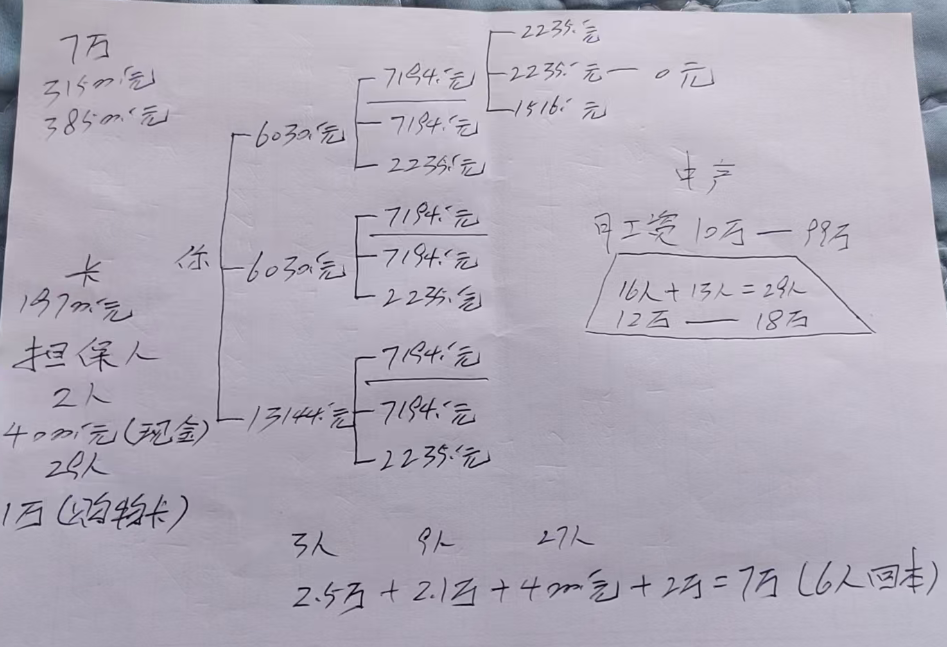 7万
31500元
38500元
卡
19700元
担保人
2人
4000元(现金)
29人
1万(购物卡)
你
6030元
7194.元
7194.元
2235.元
2235.元
2235.元 — 0元
1516.元
6030元
7194.元
7194.元
2235.元
13144.元
7194.元
7194.元
2235.元
中产
月工资10万 — 99万
16人+13人=29人
12万 — 18万
3人 9人 27人
2.5万+2.1万+4000元+2万=7万(6人回本)